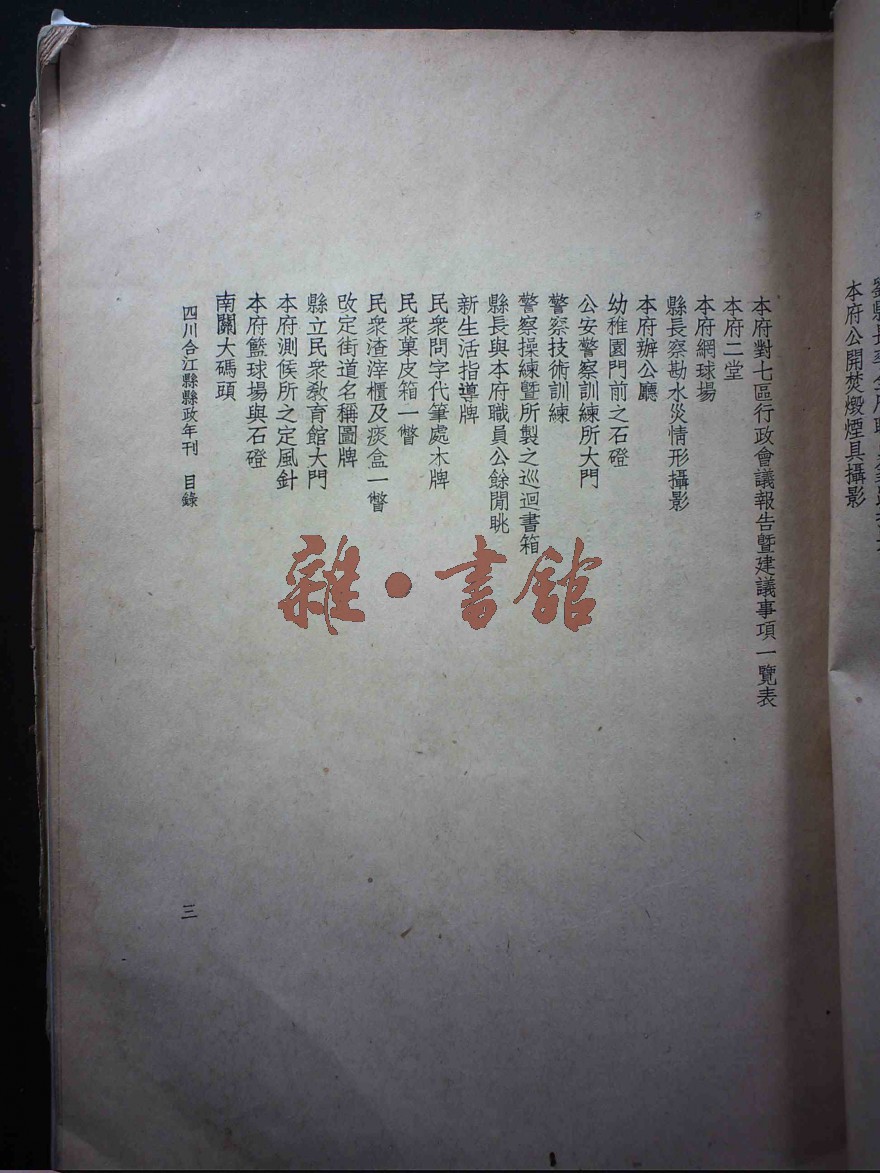 本府公開焚燬煙具攝影
本府對七區行政會議報告暨建議事項一覽表
本府二堂
本府網球場
縣長察勘水災情形攝影
本府辦公廳
幼稚園門前之石磴
公安警察訓練所大門
警察技術訓練
警察操練暨所製之巡迴書箱
縣長與本府職員公餘閒眺
新生活指導牌
民衆問字代筆處木牌
民衆菓皮箱一瞥
民衆渣滓櫃及痰盒一瞥
改定街道名稱圖牌
縣立民衆敎育館大門
本府測候所之定風針
本府籃球場與石磴
南關大碼頭
四川合江縣縣政年刊 目錄
三
雜·書館